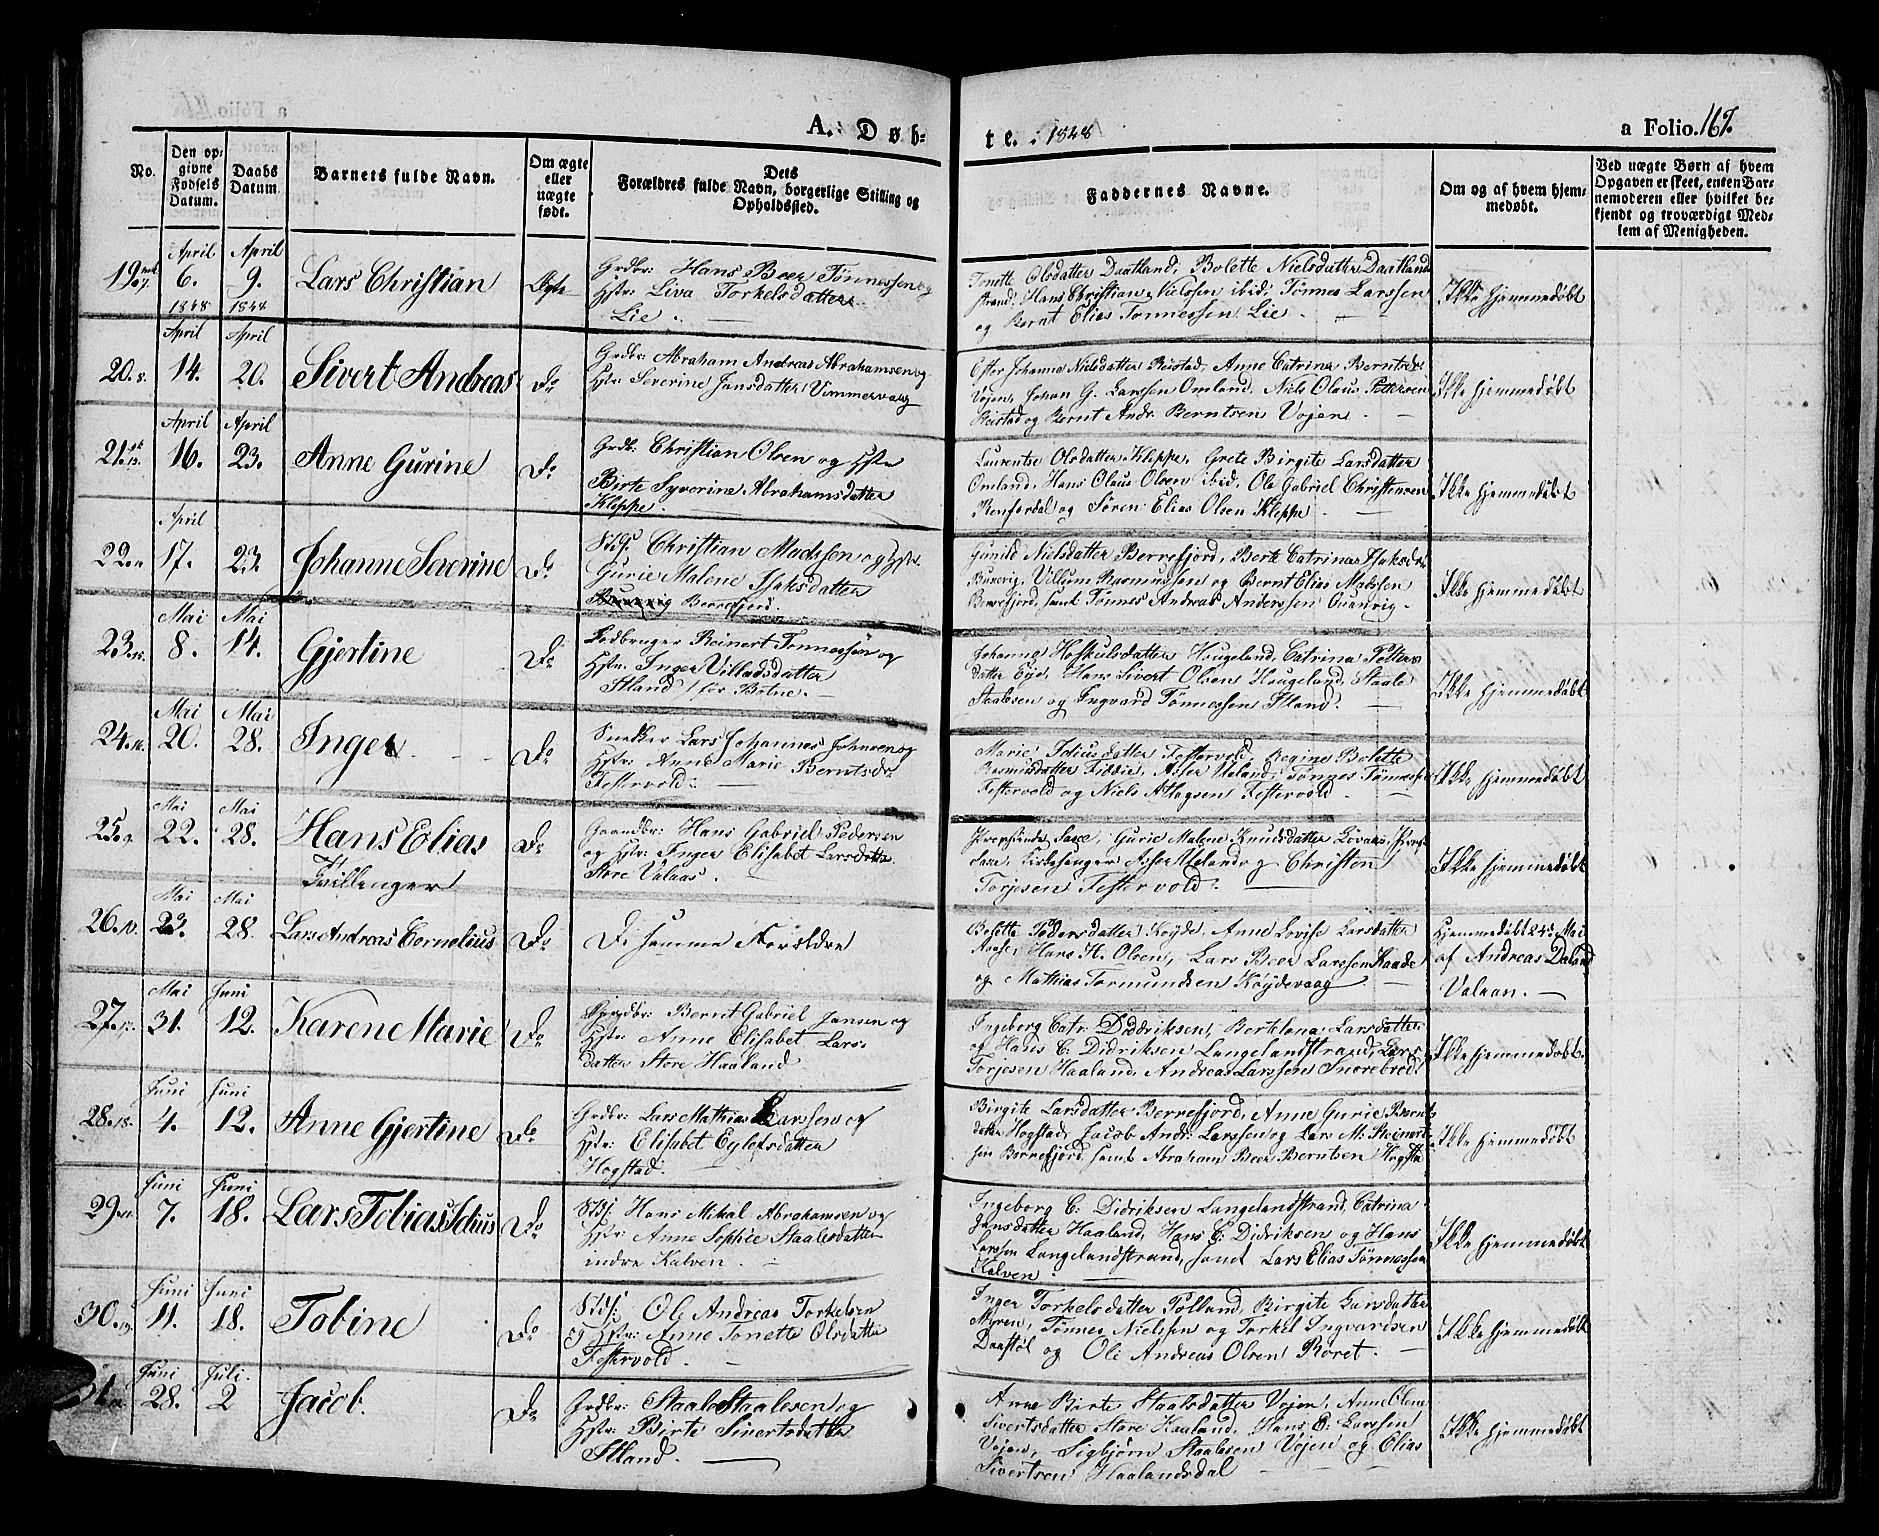 A. Døb-
te. 1848
a Folio. 167.
No.
Den op-
givne
Fødsels
Datum.
Daabs
Datum.
Barnets fulde Navn.
Om ægte
eller
uægte
født.
Dets
Forældres fulde Navn, borgerlige Stilling og
Opholdssted.
Faddernes Navne.
Om og af hvem hjem-
medøbt.
Ved uægte Børn af hvem
Opgaven er skeet, enten Bar-
nemoderen eller hvilket be-
kjendt og troværdigt Med-
lem af Menigheden.
19 April 6. 1848 April 9. 1848 Lars Christian Ægte
Grdbr: Hans Beer Tønnessen og
Hstr: Liva Torkelsdatter
Lie.
Tonette Olsdatter Daatland, Bolette Nielsdatter Daatland
strand, Hans Christian Nielssen ibid, Tønnes Larssen
og Bernt Elias Tønnessen Lie.
Ikke hjemmedøbt
20. April 14. April 20. Sivert Andreas Do
Grdbr: Abraham Andreas Abrahamsen og
Hstr: Severine Jansdatter Vimmervaag
Ester Johanne Nielsdatter Reistad, Anne Catrina Berntsdr
Vojen, Johan G. Larssen Omland, Niels Olaus Pettersen
Reistad og Bernt Andr. Berntsen Vojen.
Ikke hjemmedøbt
21. April 16. April 23. Anne Gurine Do
Grdb: Christian Olsen og Hstr
Birte Syverine Abrahamsdatter
Kleppe.
Laurentse Olsdatter Kleppe, Grete Birgite Larsdatter
Omland, Hans Olaus Olsen ibid, Ole Gabriel Christensen
Renfordal og Søren Elias Olsen Kleppe.
Ikke hjemmedøbt
22. April 17. 23. Johanne Severine Do
Christian Madssen og Hstr.
Gurie Malene Isaksdatter
Berrefjord.
Gunild Nielsdatter Berrefjord, Berte Catrina Isaksdr
Buevig, Villum Rasmussen og Bernt Elias Madssen
Berrefjord, samt Tønnes Andreas Anderssen
Ikke hjemmedøbt
23. Mai 8. Mai 14. Gjertine Do
Jodbruger Reinert Tønnessen og
Hstr. Inger Villadsdatter
Stland
Johanne Hofkulsdatter Hougeland, Catrina Petters
datter Eyd, Hans Sivert Olsen Hougeland, Staale
Staalesen og Ingvard Tønnessen Stland.
Ikke hjemmedøbt
24. Mai 20. Mai 28. Inger Do
Snedker Lars Johannes Johnsen og
Hstr: Anne Marie Berntsdr
Festervold.
Marie Juliusdatter Festervold, Regine Bolette
Rasmusdatter Fiddie, Asser Ueland, Tønnes Tønnessen
Festervold og Niels Festervold.
Ikke hjemmedøbt
25. Mai 22. Mai 28. Hans Elias Do
Tvillinger
Gaardbr: Hans Gabriel Pedersen
og Hstr: Inger Elisabet Larsdatter
Store Valaas.
Saxe, Gurie Malene Knudsdatter Løvaas,
Saxe, Kirkesanger Asser Ueland og Christen
Torjesen Festervold.
Ikke hjemmedøbt
26. Mai 23. Mai 28. Lars Andreas Cornelius Do
De samme Forældre
Bolette Pedersdatter Køyde, Anne Lovise Larsdatter
Aase, Hans H. Olsen, Lars Beer Larssen Kaade
og Mathias Tormundsen Køydevaag
Hjemmedøbt 24de Mai
af Andreas Daland
Valaan.
27. Mai 31. Juni 12. Karene Marie Do
Bernt Gabriel Jansen og
Hstr: Anne Elisabet Lars-
datter Store Haaland.
Ingeborg Catr: Didriksen, Bertelena Larsdatter
og Hans C. Didriksen Langelandstrand, Lars
Torjesen Haaland, Andreas Larssen Snorebrød.
Ikke hjemmedøbt.
28. Juni 4. Juni 12. Anne Gjertine Do
Grdbr: Lars Mathias Larssen og
Hstr: Elisabet Eylefsdatter
Hogstad.
Birgite Larsdatter Berrefjord, Anne Gurie Bernts
datter Hogstad, Jacob Andr. Larssen og Lars M: Steinert
sen Berrefjord samt Abraham Beer Berntsen Hogstad
Ikke hjemmedøbt
29. Juni 7. Juni 18. Lars Tobias Julius Do
Hans Mikal Abrahamsen og
Hstr: Anne Sophie Staalesdatter
indre Kalven.
Ingeborg C: Didriksen Langelandstrand, Catrina
Jansdatter Haaland, Hans C. Didriksen og Hans
Larssen Langelandstrand, samt Lars Elias Tønnessen
Kalven.
Ikke hjemmedøbt
30. Juni 11. Juni 18. Tobine Do
Ole Andreas Torkelsen
og Hstr: Anne Tonette Olsdatter
Festervold.
Inger Torkelsdatter Tolland, Birgite Larsdatter
Myren, Tønnes Nielssen og Torkel Ingvardsen
Daastøl og Ole Andreas Olsen Røret.
Ikke hjemmedøbt
31. Juni 28. Juli 2 Jacob. Do
Grdbr: Staale Staalesen og
Hstr: Birte Sivertsdatter
Stland.
Anne Birte Staalsdatter Vojen, Anne Olene
Sivertsdatter Store Haaland, Hans E. Larssen
Vojen, Sigbjørn Staalesen Vojen og Elias
Sivertsen Haalandsdal
Ikke hjemmedøbt